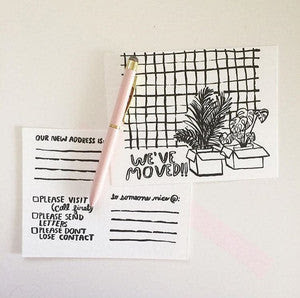 WE'VE
MOVED!!
OUR NEW ADDRESS IS:
PLEASE VISIT
(call first)
PLEASE SEND
LETTERS
PLEASE DON'T
LOSE CONTACT
to someone nice @: